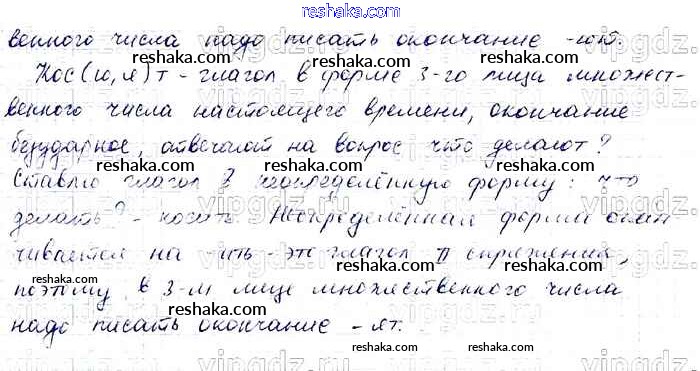 reshaka.com
венного числа надо писать окончание -ют.
reshaka.com
Кос(ю,я)т - глагол в форме 3-го лица множест-
reshaka.com reshaka.com
венного числа настоящего времени, окончание
безударное, отвечают на вопрос что делают?
reshaka.com reshaka.com
Ставлю глагол в неопределённую форму: что
reshaka.com reshaka.com
делать? - косить. Неопределённая форма окан
reshaka.com reshaka.com
чивается на -ить - это глагол II спряжения,
reshaka.com reshaka.com
поэтому в 3-м лице множественного числа
reshaka.com reshaka.com
надо писать окончание -ят.
reshaka.com reshaka.com
reshaka.com